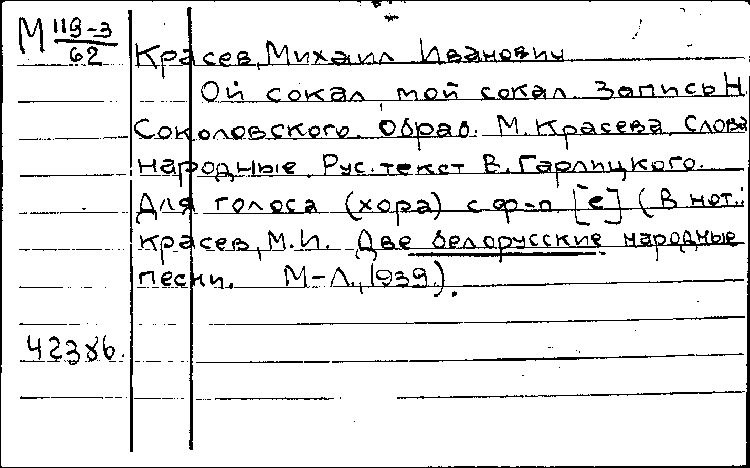 М 119-3
62
Красев, Михаил Иванович
Ой сокал, мой сокал. Запись Н.
Соколовского. Обраб. М. Красева. Слова
народные. Рус. текст В. Гарлицкого.
Для голоса (хора) с ф-п [e] (В нот.:
Красев, М.И. Две белорусские народные
песни. М-Л., 1939).
42386.